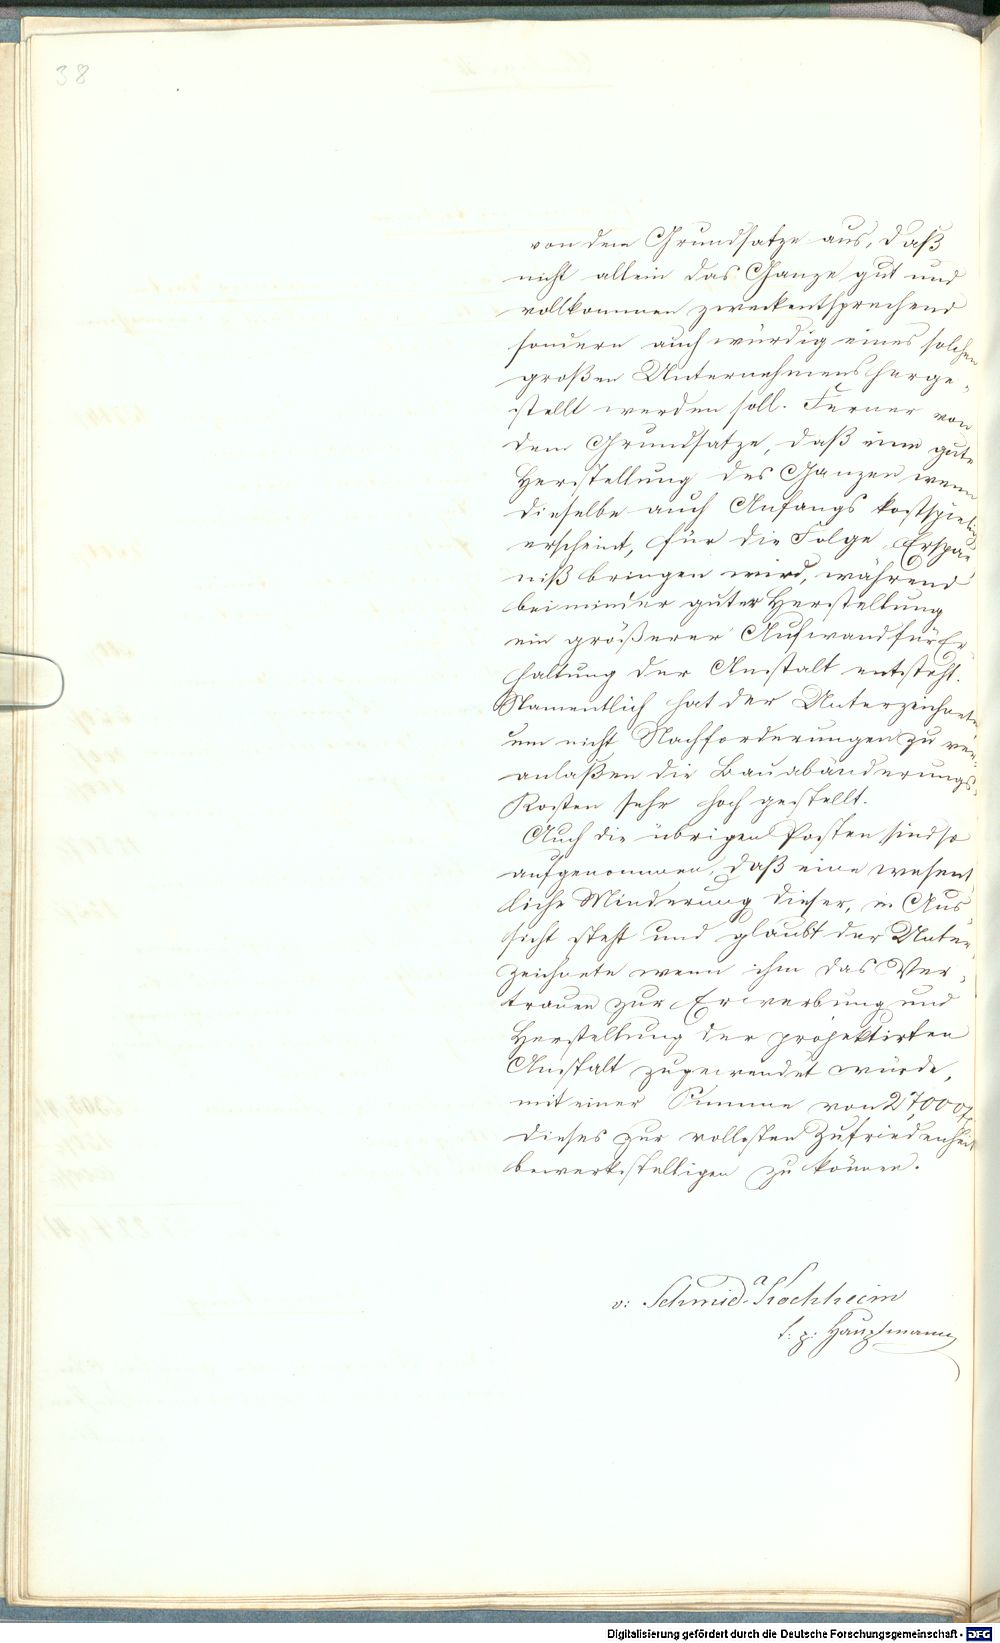 38
von dem Grundsatze aus, daß
nicht allein das Ganze gut und
vollkommen zweckentsprechend
sondern auch würdig eines solchen
großen Unternehmens herge-
stellt werden soll. Ferner von
dem Grundsatze, daß eine gute
Herstellung des Ganzen wenn
dieselbe auch Anfangs kostspielig
erscheint, für die Folge Erspar-
niß bringen wird, während
bei minder guter Herstellung
ein größerer Aufwand für Er-
haltung der Anstalt entsteht.
Namentlich hat der Unterzeichnete
um nicht Nachforderungen zu ver-
anlaßen die Bauabänderungs-
Kosten sehr hoch gestellt.
Auch die übrigen Posten sind so
aufgenommen, daß eine wesent-
liche Minderung dieser, in Aus-
sicht steht und glaubt der Unter-
zeichnete wenn ihm das Ver-
trauen zur Erwerbung und
Herstellung der projektirten
Anstalt zugewendet würde,
mit einer Summe von 27,000 f
dieses zur vollesten Zufriedenheit
bewerkstelligen zu können.
v: Schmid-Kochheim
k: p: Hauptmann
Digitalisierung gefördert durch die Deutsche Forschungsgemeinschaft - DFG